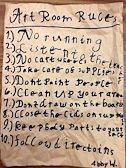 Art Room Rules
1) No running
2) Listen to the
4) Take care of supplies
5) Dont Paint People
6) Clean up your area
7) Dont draw on the board
8) Close the lids on
9) Keep body Parts to your self
10) Follow directions
Abby W.